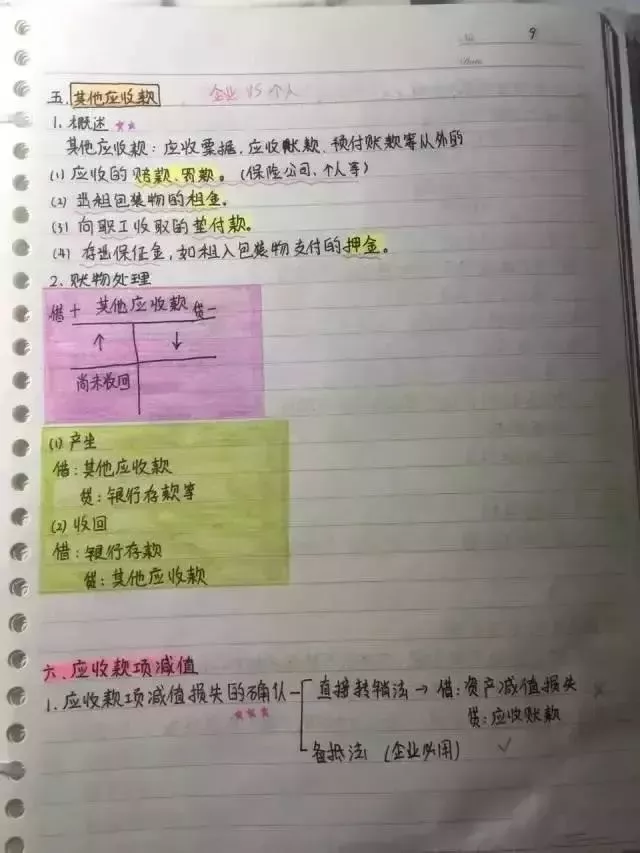 No. 9
Date
五.其他应收款 企业 VS 个人
1.概述 ★★
其他应收款：应收票据、应收账款、预付账款等从外的
(1) 应收的赔款、罚款。(保险公司、个人等)
(2) 出租包装物的租金。
(3) 向职工收取的垫付款。
(4) 存出保证金，如租入包装物支付的押金。
2.账物处理
借 + 其他应收款 贷 -
↑ ↓
尚未收回
(1) 产生
借：其他应收款
贷：银行存款等
(2) 收回
借：银行存款
贷：其他应收款
六.应收款项减值
1.应收款项减值损失的确认 直接转销法 → 借：资产减值损失 ×
★★★ 贷：应收账款
备抵法 (企业必用) ✓